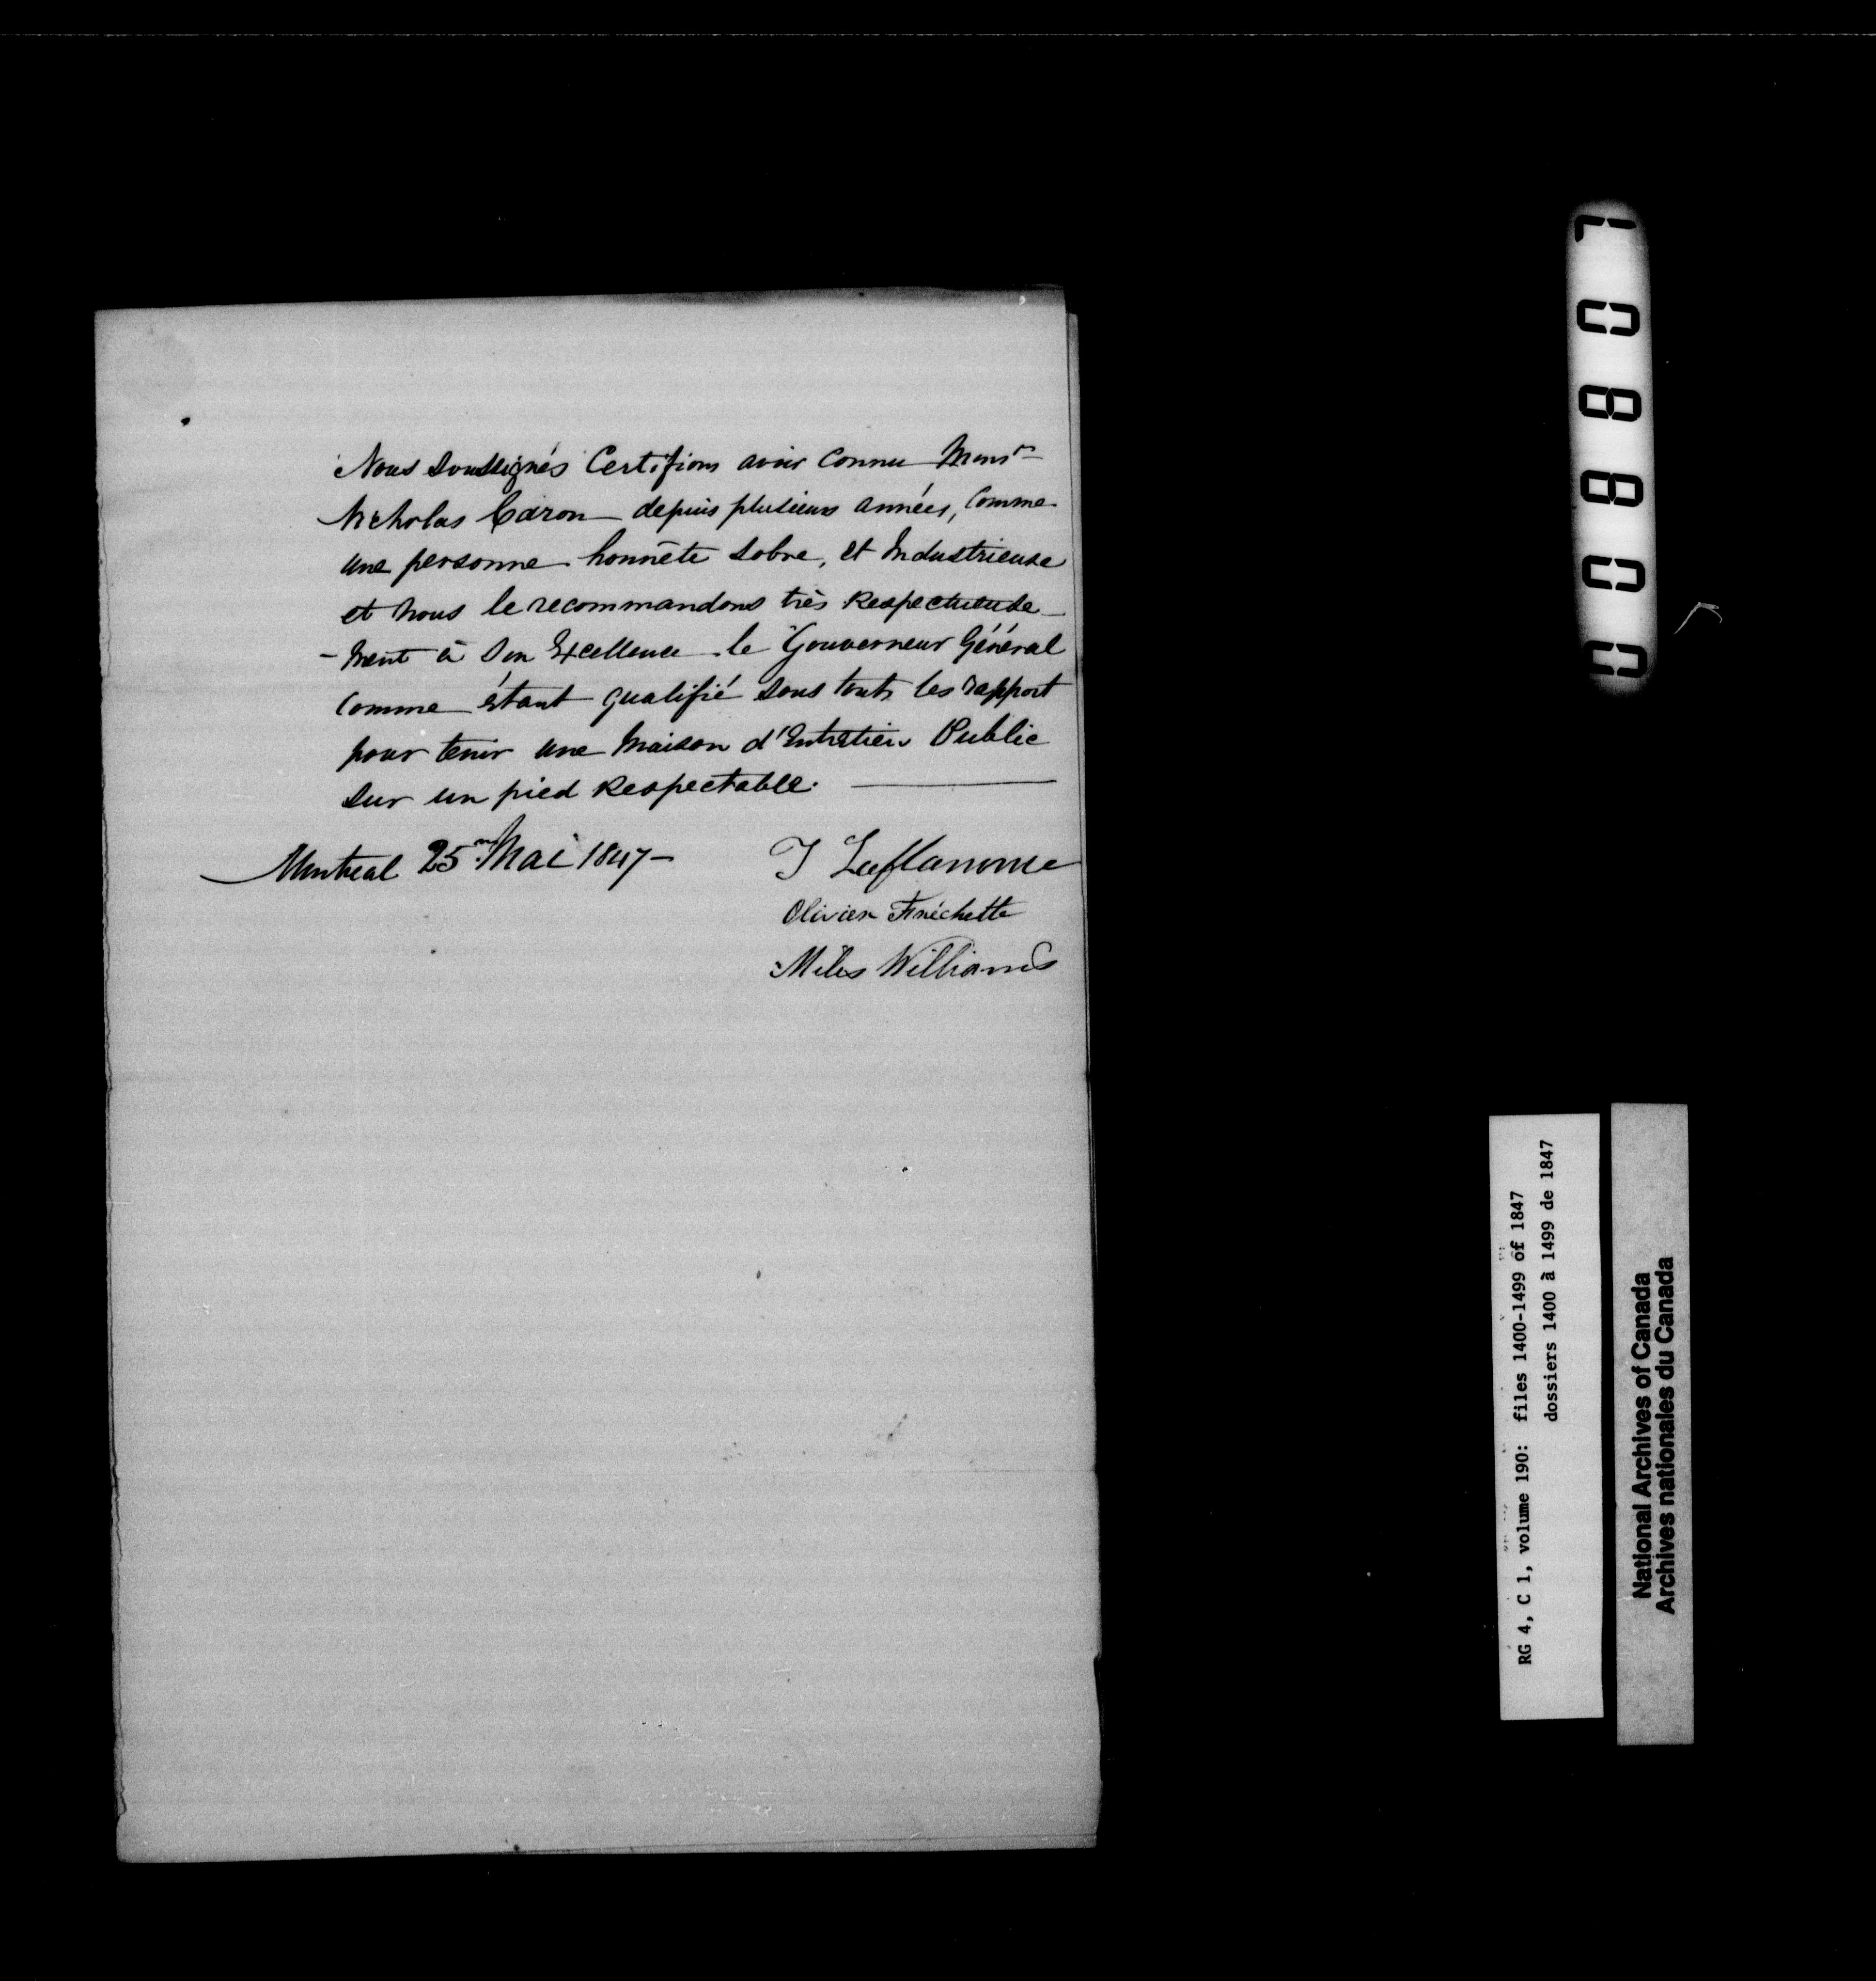 Nous Soussignés Certifions avoir Connu Monsr
Nicholas Caron depuis plusieurs années, comme
une personne honnête sobre, et Industrieuse
et nous le recommandons très Respectueuse
-ment à Son Excellence le Gouverneur Général
comme étant qualifié sous touts les rapport
pour tenir une Maison d'Entretien Public
sur un pied Respectable.
Montreal 25me Mai 1847
J Laflamme
Olivier Fréchette
Miles Williams
RG 4, C 1, volume 190: files 1400-1499 of 1847
dossiers 1400 à 1499 de 1847
National Archives of Canada
Archives nationales du Canada